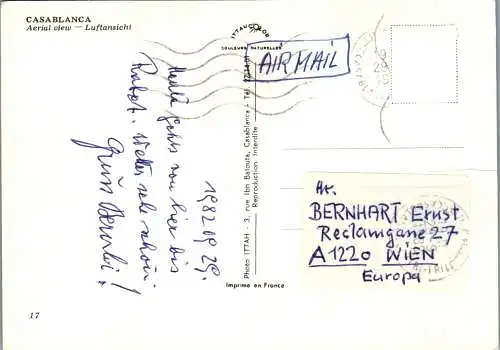 CASABLANCA
Aerial view — Luftansicht
COULEURS NATURELLES
AIR MAIL
1982 09 29.
Heute geht's von hier bis
Rabat. Wetter sehr schön.
Photo ITTAH - 3, rue Ibn Batouta, Casablanca - Tél.
Reproduction Interdite
Hr.
BERNHART Ernst
Reclamgane 27
A 1220 WIEN
Europa
Imprimé en France
17